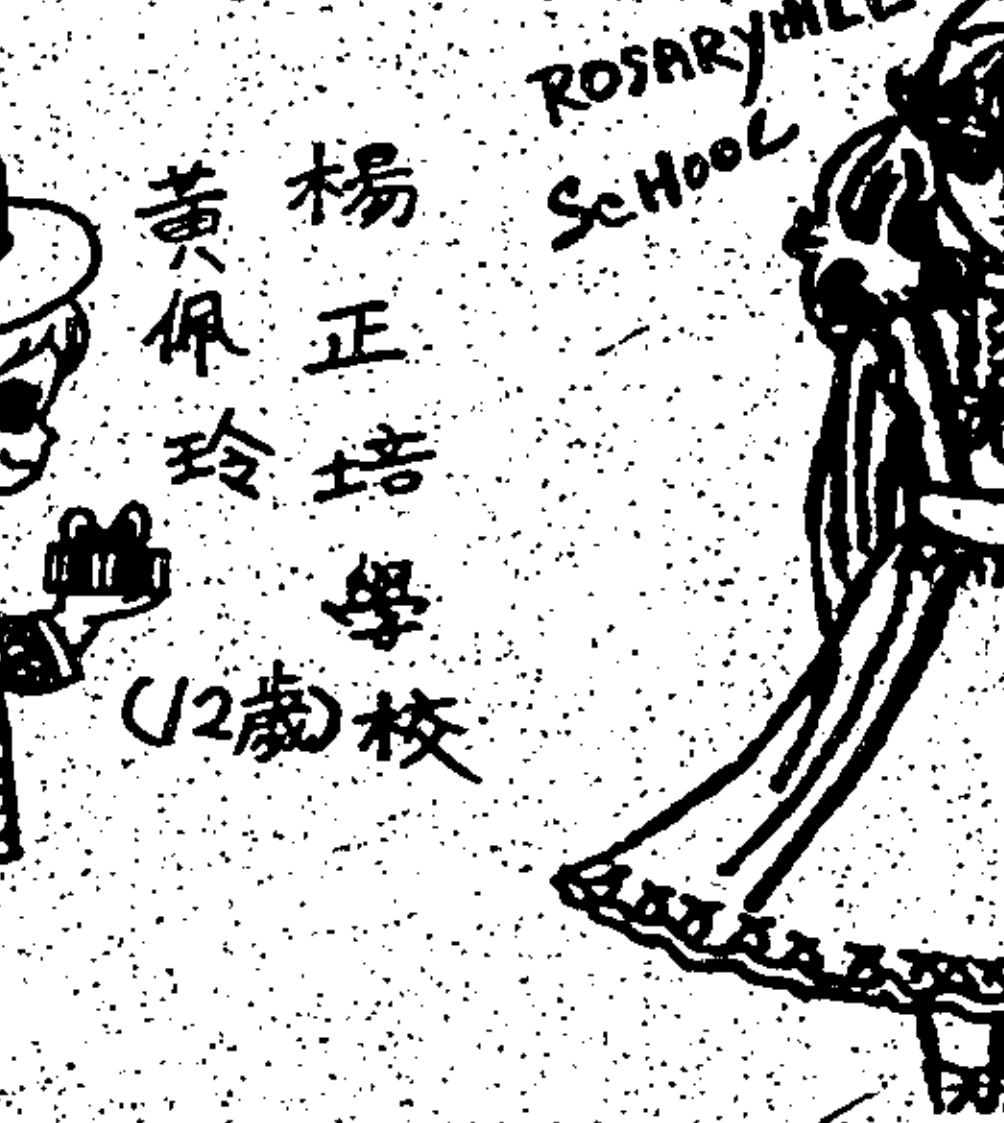 ROSARYHILL
SCHOOL
楊正培學校
黃佩玲
(12歲)